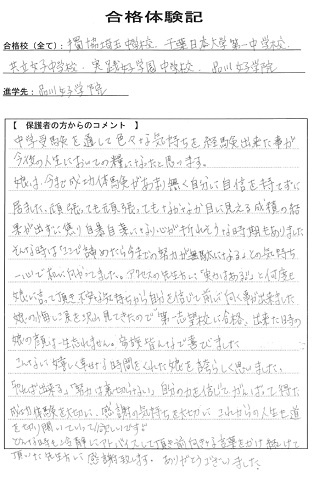 合格体験記
合格校（全て）：獨協埼玉中学校、千葉日本大学第一中学校、
共立女子中学校、実践女子学園中学校、品川女子学院
進学先：品川女子学院
【 保護者の方からのコメント 】
中学受験を通して色々な気持ちを経験出来た事が
今後の人生においての糧になったと思います。
娘は、今まで成功体験があまり無く自分に自信を持てずに
居ました。頑張っても頑張ってもなかなか目に見える成績の結
果が出ずに焦り自暴自棄になり心が折れそうな時期もありました
そんな時は「ここで諦めたら今までの努力が無駄になる」との気持ち
一心で私に向かってました。アクセスの先生方に「実力はある」と何度も
娘に言って頂き不安な気持ちから自分を信じて前に向く事が出来ました
娘の悔し涙を沢山見てきたので「第一志望校に合格」出来た時の
娘の顔は一生忘れません。家族皆んなで喜びました
こんなに嬉しく幸せな時間をくれた娘を誇らしく思いました。
「やれば出来る」「努力は裏切らない」自分の力を信じて、がんばって得た
成功体験を大切に、感謝の気持ちを大切に これからの人生も道
を切り開いていって欲しいです。
どんな時も冷静にアドバイスして頂き前向きになる言葉をかけ続けて
頂いた先生方に感謝致します。ありがとうございました